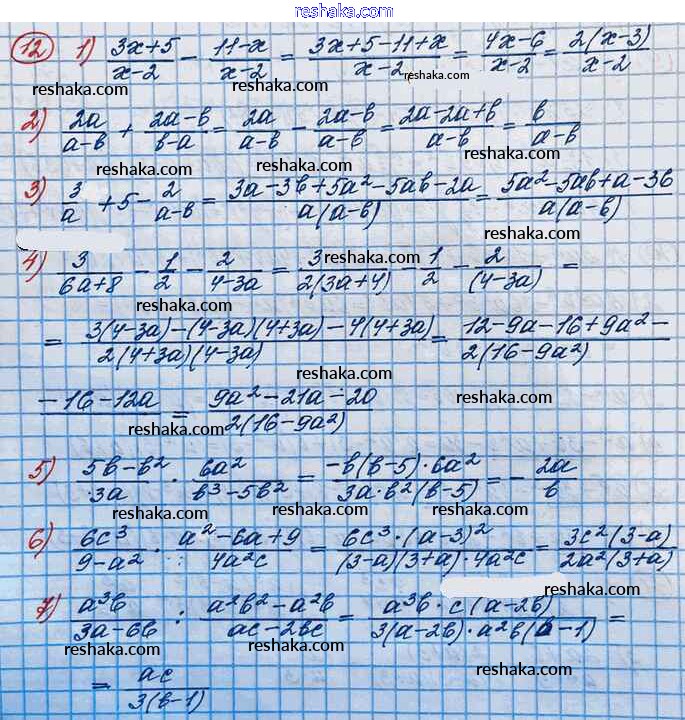 reshaka.com
12 1) (3x+5)/(x-2) - (11-x)/(x-2) = (3x+5-11+x)/(x-2) = (4x-6)/(x-2) = 2(x-3)/(x-2)
reshaka.com reshaka.com reshaka.com
2) 2a/(a-b) + (2a-b)/(b-a) = 2a/(a-b) - (2a-b)/(a-b) = (2a-2a+b)/(a-b) = b/(a-b)
reshaka.com reshaka.com reshaka.com
3) 3/a + 5 - 2/(a-b) = (3a-3b+5a²-5ab-2a)/(a(a-b)) = (5a²-5ab+a-3b)/(a(a-b))
reshaka.com reshaka.com
4) 3/(6a+8) - 1/2 - 2/(4-3a) = 3/(2(3a+4)) - 1/2 - 2/(4-3a) =
reshaka.com reshaka.com
= (3(4-3a)-(4-3a)(4+3a)-4(4+3a))/(2(4+3a)(4-3a)) = (12-9a-16+9a²-
reshaka.com reshaka.com
-16-12a)/(2(16-9a²)) = (9a²-21a-20)/(2(16-9a²))
reshaka.com reshaka.com
5) (5b-b²)/3a · 6a²/(b³-5b²) = (-b(b-5)·6a²)/(3a·b²(b-5)) = - 2a/b
reshaka.com reshaka.com reshaka.com
6) 6c³/(9-a²) · (a²-6a+9)/4a²c = (6c³·(a-3)²)/((3-a)(3+a)·4a²c) = 3c²(3-a)/(2a²(3+a))
reshaka.com reshaka.com reshaka.com
7) a³b/(3a-6b) : (a²b²-a²b)/(ac-2bc) = (a³b·c(a-2b))/(3(a-2b)·a²b(b-1)) =
reshaka.com reshaka.com
= ac/(3(b-1))
reshaka.com reshaka.com